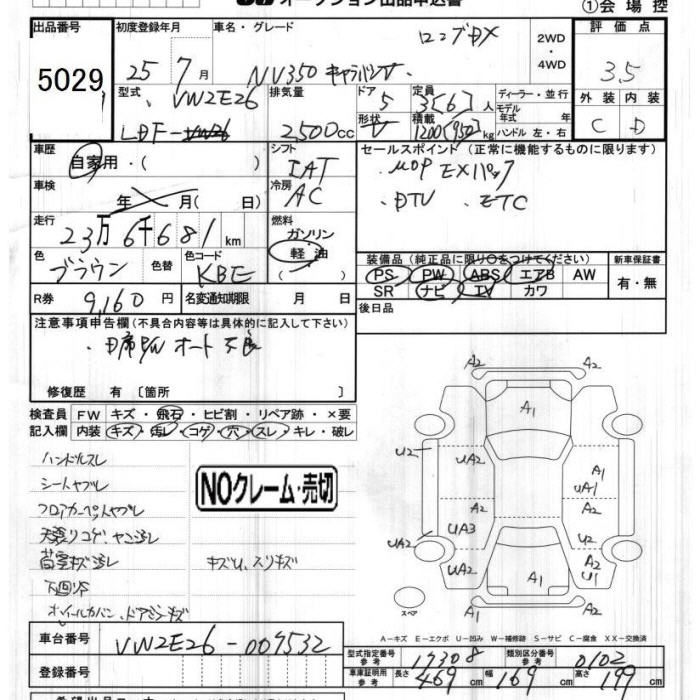 オークション出品申込書
①会場控
出品番号
5029
初度登録年月
25年7月
車名・グレード
ロングDX
NV350 キャラバン
2WD・4WD
評価点
3.5
型式
VW2E26
LDF-
排気量
2500cc
ドア
5
形状
V
定員
3[6]人
積載
1200[950]kg
ディーラー・並行
モデル年式 年
ハンドル 左・右
外装 内装
C D
車歴
自家用・( )
シフト
IAT
セールスポイント(正常に機能するものに限ります)
・MOP EXパック
・DTV ・ETC
車検
年 月( 日)
冷房
AC
走行
23万6千681km
燃料
ガソリン
軽油
色
ブラウン
色替
色コード
KBE
装備品(純正品に限り○をつけてください)
PS PW ABS エアB AW
SR ナビ TV カワ
新車保証書
有・無
R券
9,160円
名変通知期限 月 日
後日品
注意事項申告欄(不具合内容等は具体的に記入して下さい)
・D席P/W オート不良
修復歴 有〔箇所 〕
検査員記入欄
FW キズ・飛石・ヒビ割・リペア跡・×要
内装 キズ・汚レ・コゲ・穴・スレ・キレ・破レ
ハンドルスレ
シートヤブレ
フロアカーペットヤブレ
天張りコゲ、ヤニ汚レ
荷室キズ汚レ
キズU、スリキズ
下回りS
ホイールカバー、ドアミラーキズ
NOクレーム・売切
A2 A2
A1
U2 UA2 A1
UA1
A2 A2
UA3 U2
UA2 UA2 A2
U1
A1
A2 A2
スペア
A-キズ E-エクボ U-凹み W-補修跡 S-サビ C-腐食 XX-交換済
車台番号
VW2E26-009532
登録番号
型式指定番号 参考
17308
類別区分番号 参考
0102
車庫証明用 参考
長さ 469cm 幅 169cm 高さ 199cm